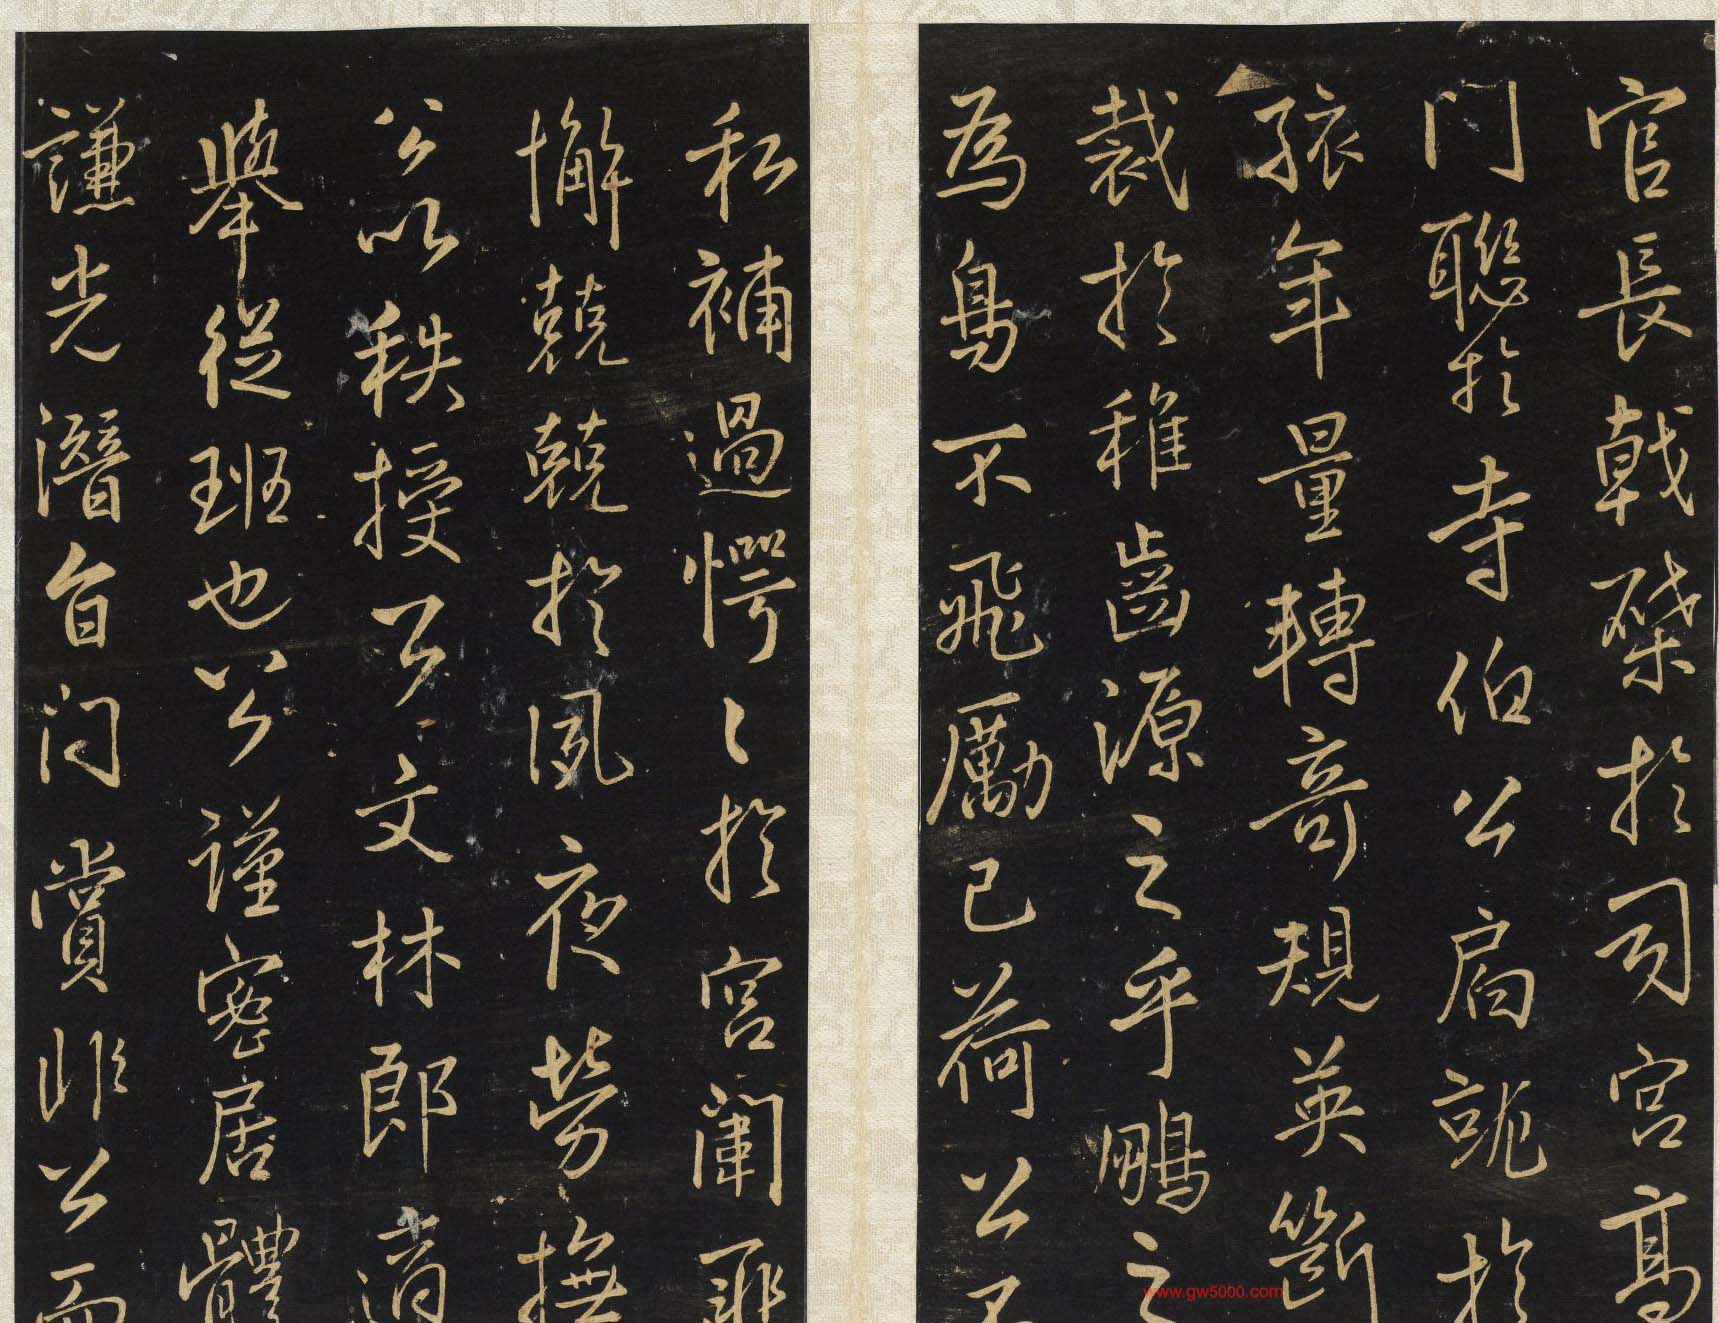 官長戟於司宮高
門聯於寺伯公扃詭於
孩年量轉奇規英斷
裁於稚齒源之乎鵬之
為鳥不飛勵已荷公不
私補過愕々於宮闈罪
懈兢兢於夙夜勞撫
公以秩授公文林郎適
舉從班也公謹密居體
謙光潛自門賞非公而
www.gw5000.com